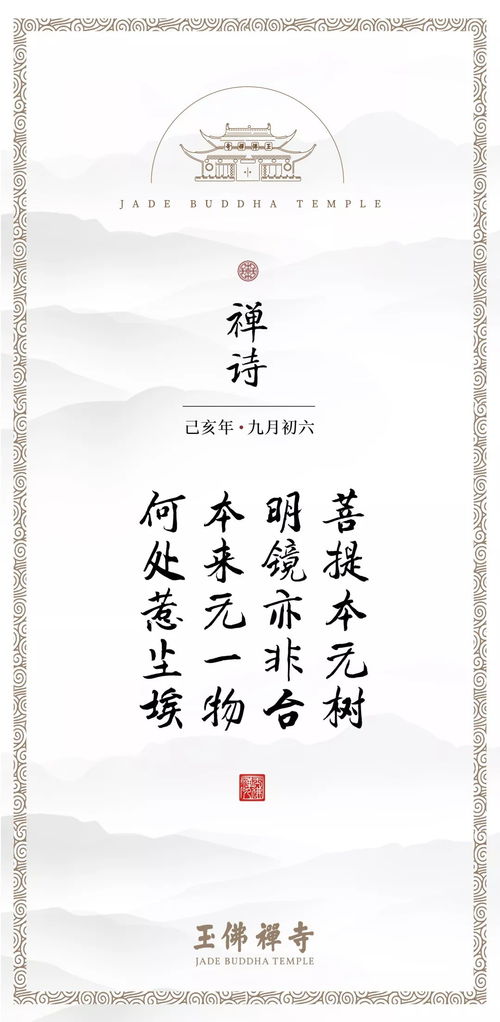 JADE BUDDHA TEMPLE
禅诗
己亥年·九月初六
菩提本无树
明镜亦非台
本来无一物
何处惹尘埃
玉佛禅寺
JADE BUDDHA TEMPLE